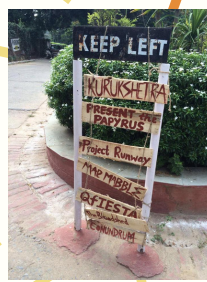 KEEP LEFT
KURUKSHETRA
PRESENT the
PAPYRUS
Project Runway
MAP MARBLE
QFIESTA
CONUNDRUM